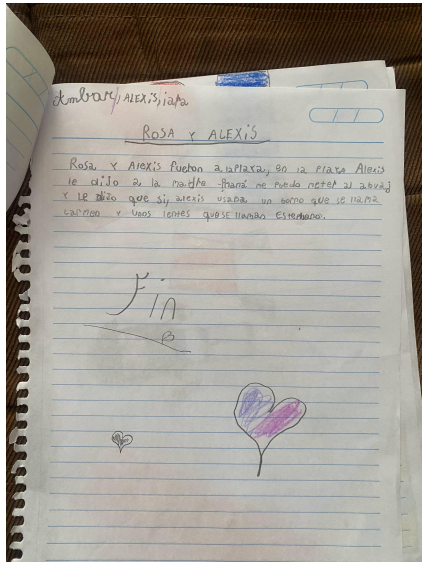 Ambar, ALEXIS, iara
ROSA Y ALEXIS
Rosa Y Alexis fueron a la Playa, en la Playa Alexis
le dijo a la madre -mamá me puedo meter al agua
Y Le dijo que si, alexis usaba un gorro que se llama
carmen y unos lentes que se llaman Estembano.
Fin